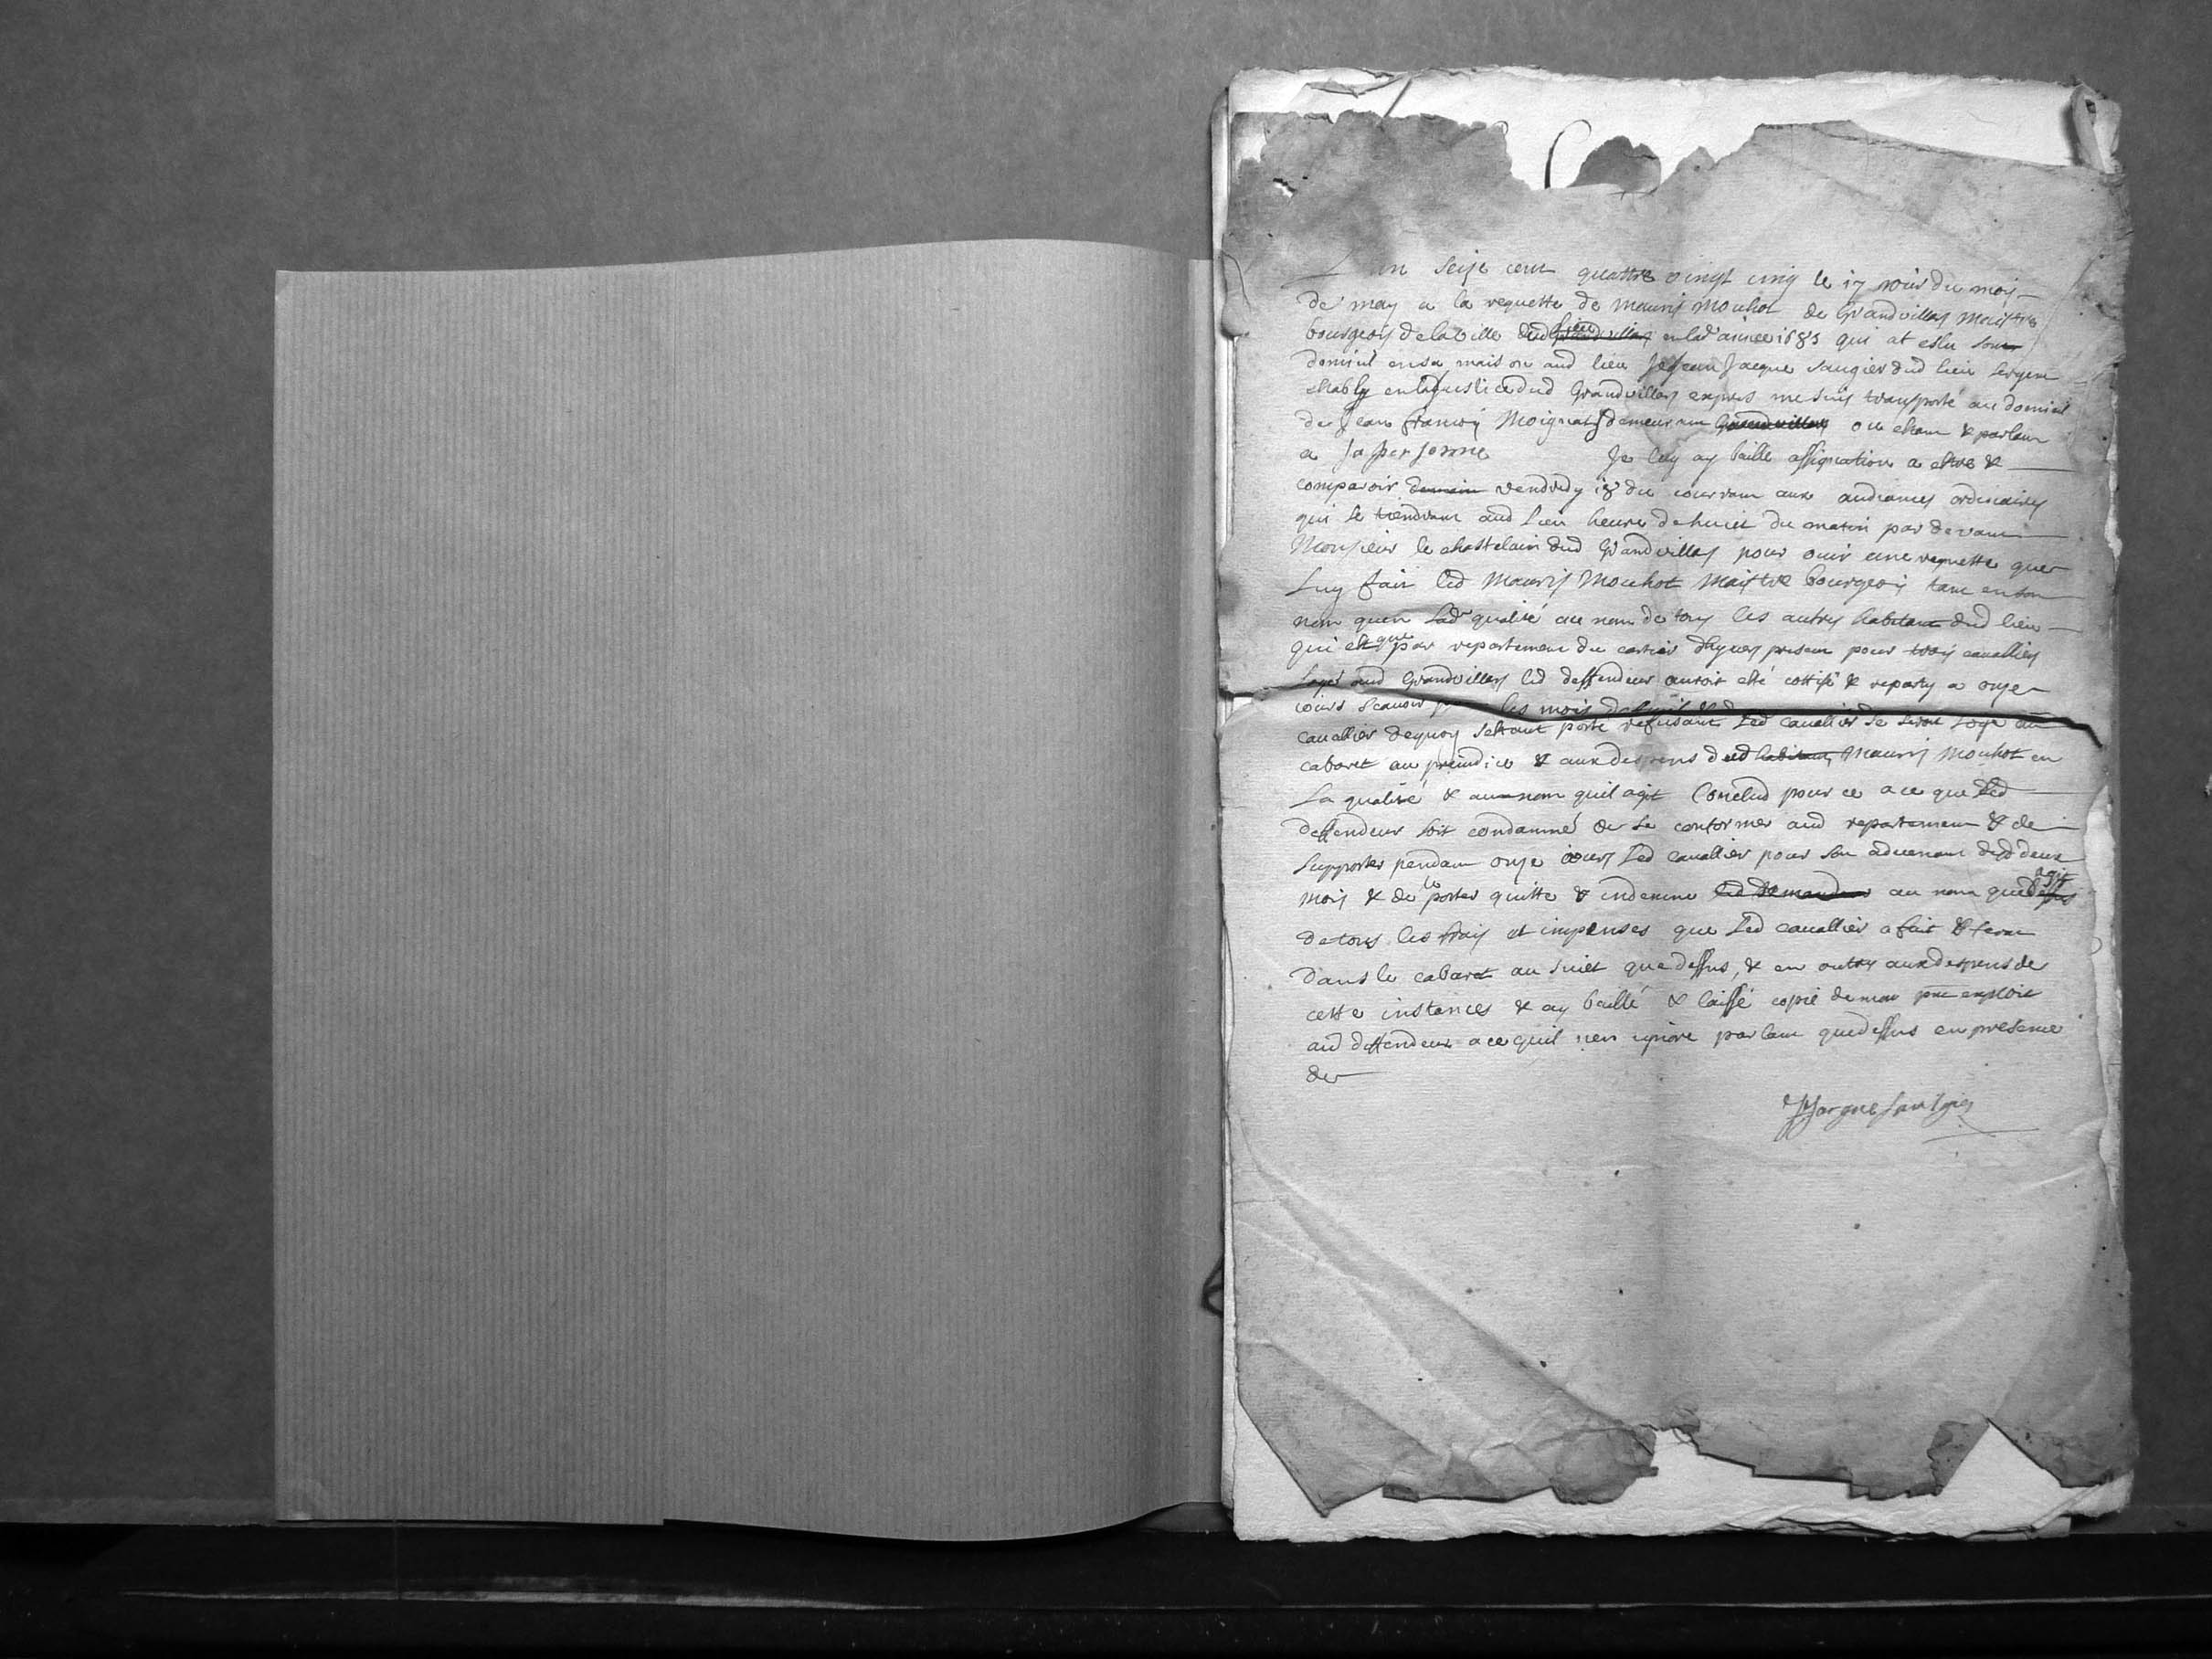 Lan seize cent quattre vingt cinq le 17 jour du mois
de may a la requette de Mauris Mouhot de Grandvillas Maistre
bourgeois de la ville dud lieu Grandvillas en lad annee 1685 qui at eslu son
domicil en sa maison aud lieu Je Jean Jacque Saugier dud lieu sergent
estably en la justice dud Grandvillas expres me suis transporté au domicil
de Jean françois Moignat demeurant Grandvillas ou estant & parlant
a sa personne Je luy ay baillé assignation a estre &
comparoir demain vendredy 18 du courrant aux audiances ordinaires
qui se tiendront aud lieu heure de huict du matin par devant
Monsieur le chastelain dud Grandvillas pour ouir une requette que
Luy fait led Mauris Mouhot Maistre bourgeois tant en son
nom quen lad qualité au nom de tous les autres habitant dud lieu
qui est que par repartement du cartier present pour trois cavalliers
Logés aud Grandvillas led deffendeur auroit esté cottisé & reparty a onze
jours scavoir les mois
cavallier dequoy sestant porté refusant Led cavallier se seroit logé au
cabaret au preiudice & aux despens dud habitant Mauris Mouhot en
La qualité & au nom quil agit Conclud pour ce a ce que led
deffendeur soit condamné de se conformer aud repartement & de
supporter pendant onze jours Led cavallier pour son advenant desd deux
mois & de le porter quitte & indemne led demandeur au nom que dessus agit
de tous les frais et impenses que Led cavallier a fait & feront
dans le cabaret au suiet que dessus, & en outre aux despens de
cette instances & ay baillé & laissé copie de mon pnt exploit
aud deffendeur a ce quil nen ignore parlant que dessus en presence
de
JJacque Saulgier